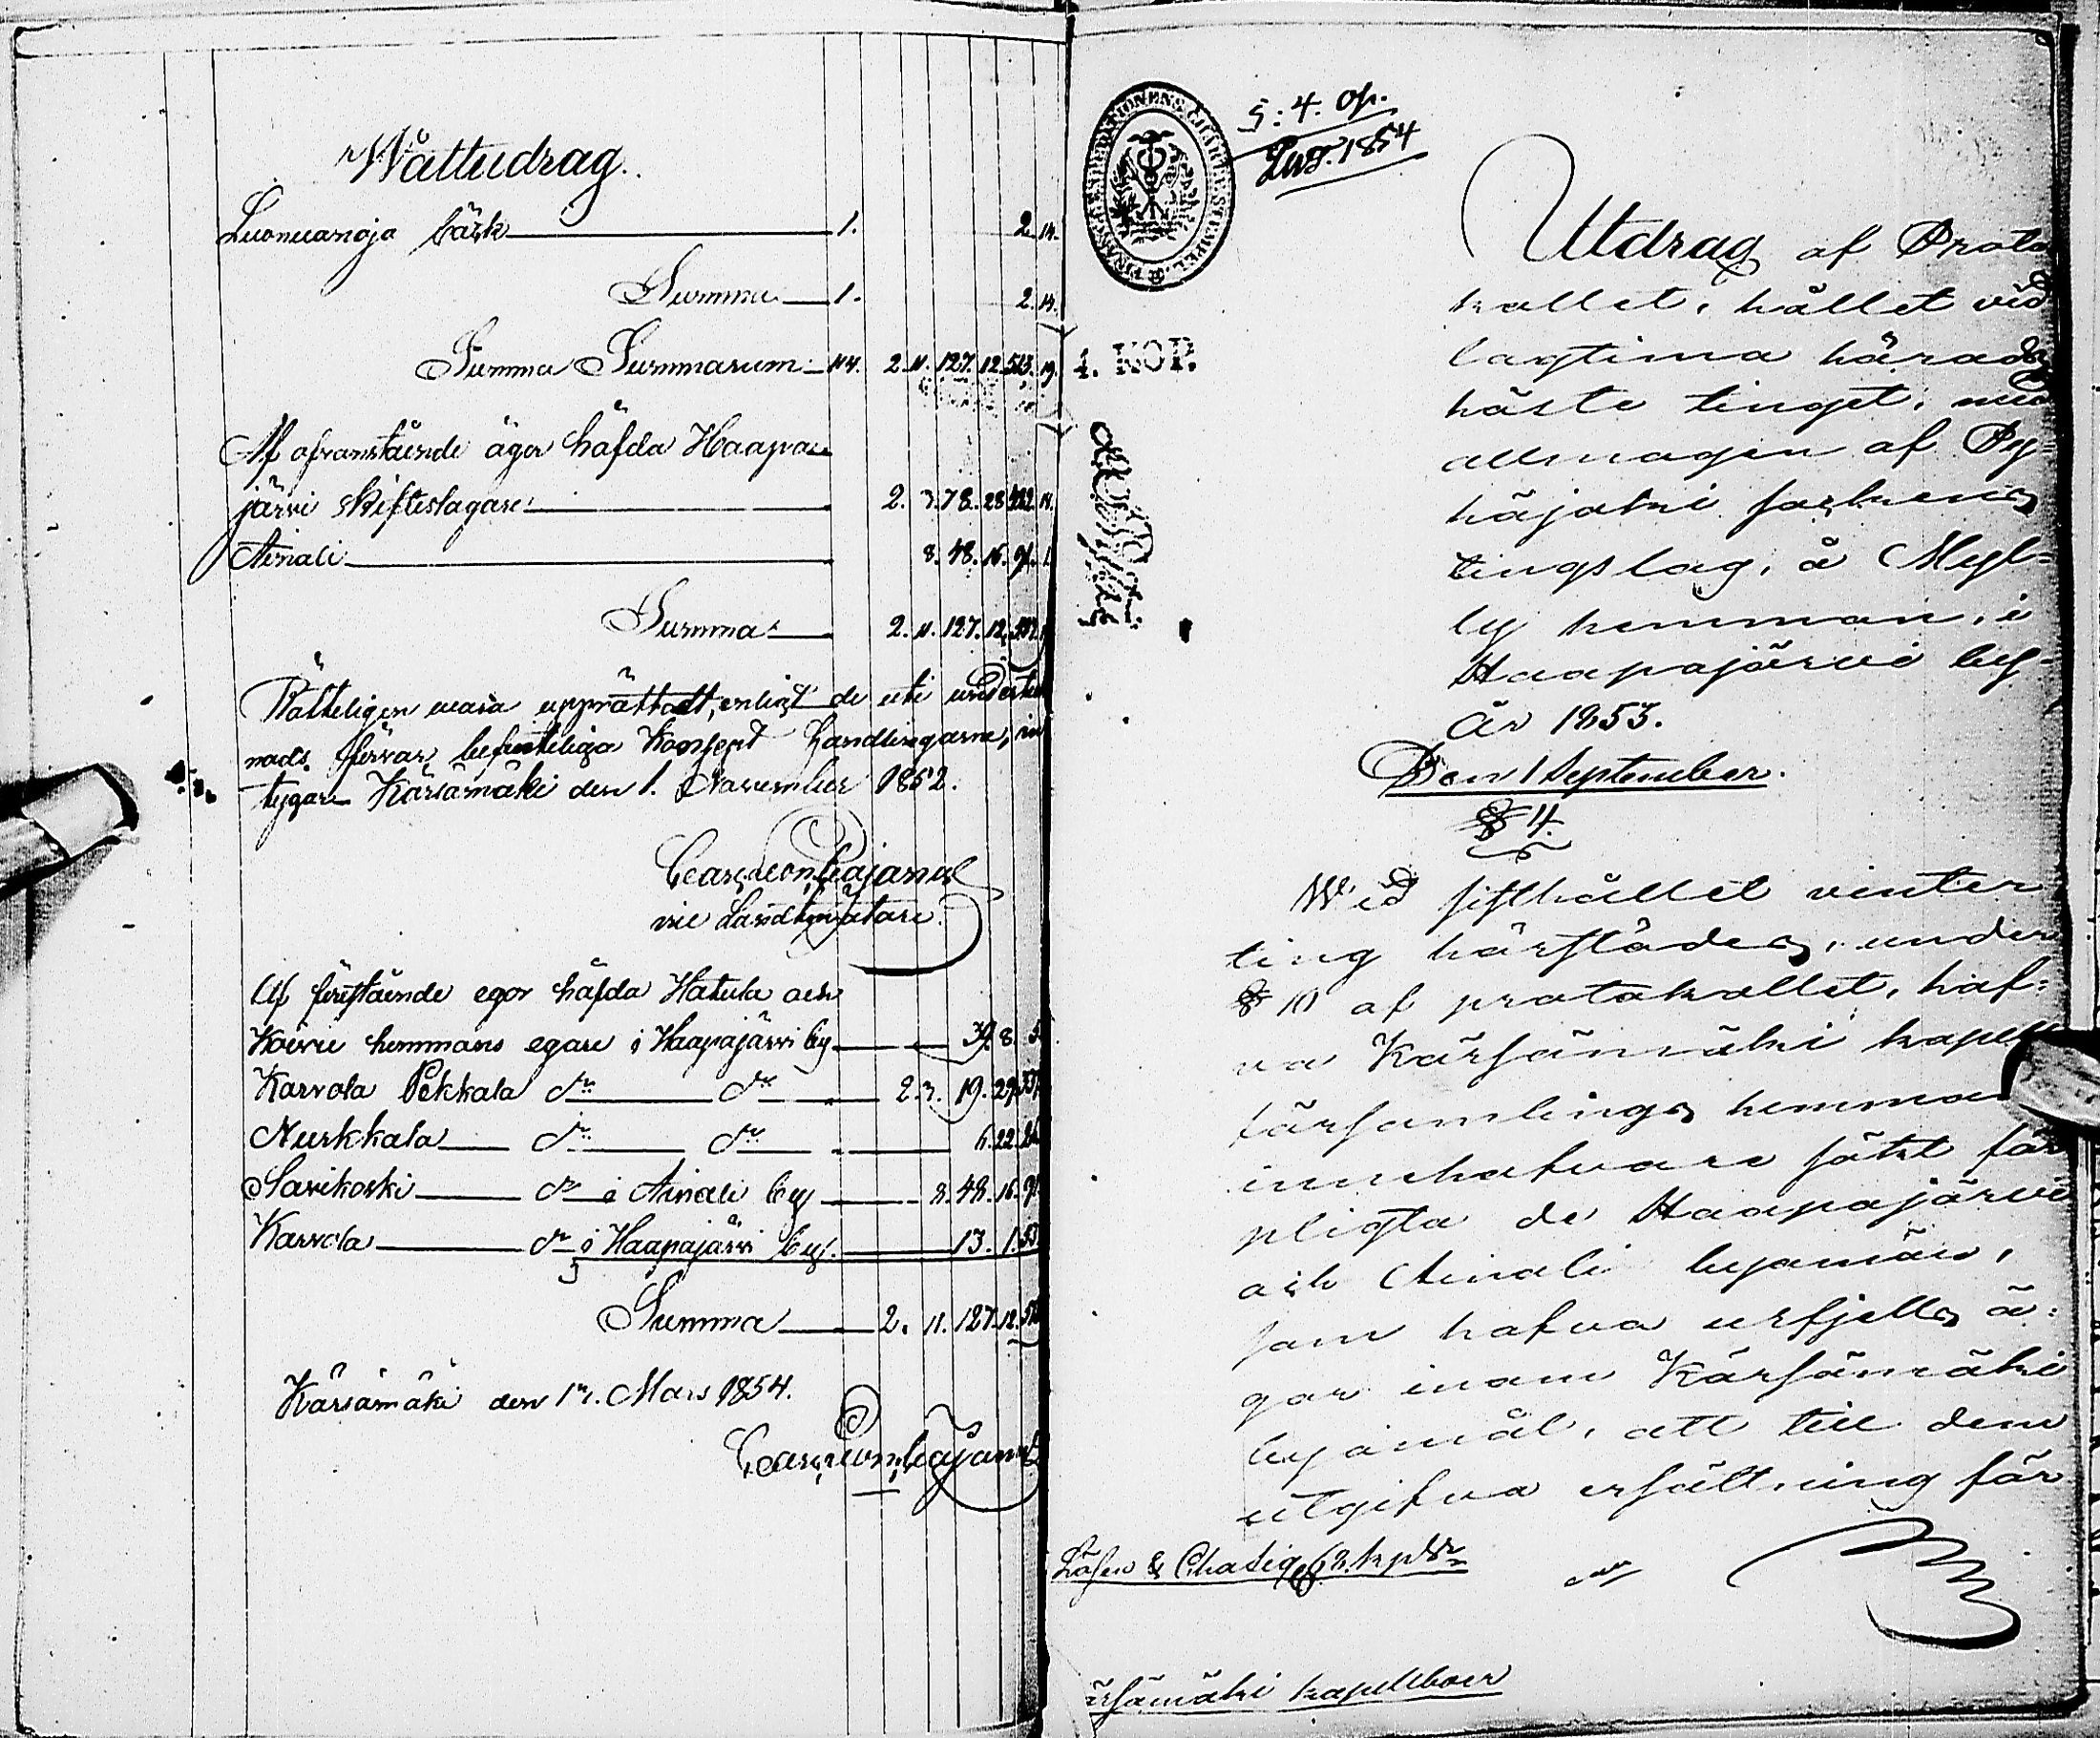 Wattudrag.
Luonuanoja bäck 1. 2. 14.
Summa 1. 2. 14.
Summa Summarum 114. 2. 11. 127. 12. 513. 19.
Af ofvanstående äger häfda Haapa-
järvi skifteslagare 2. 3. 78. 28. 14.
Ainali 8. 48. 16. 91. 1.
Summa 2. 11. 127. 12.
Rätteligen vara upprättadt, enligt de uti underteck
nads förvar befinteliga Koncept Handlingarne, in
tygar Kärsämäki den 1. November 1852.
Cajanus
vice Landtmätare.
Af förestående egor häfda Hatula och
Koivu hemmans egare i Haapajärvi by 39. 8. 5
Karvola Pekkala d:o d:o 2. 3. 19. 27.
Nurkkala d:o d:o 6. 22.
Savikoski d:o i Ainali by 8. 48. 16. 91
Karvola d:o i Haapajärvi by. 13. 1. 53
Summa 2. 11. 127. 12.
Kärsämäki den 17. Mars 1854.
Cajanus
FINANCE EXPEDITIONENS CHARTÆ STEMPEL.
5: 4. op.
1854
4. KOP.
Utdrag af Proto
kollet, hållet vid
lagtima härads
höste tinget, med
allmogen af Py-
häjoki sockens
tingslag, å Myl-
ly hemman, i
Haapajärvi by
år 1853.
Den 1 September.
§ 4.
Wid sisthållet vinter
ting härstädes, under
§ 10 af protokollet, haf-
va Kärsämäki kapell
församlings hemmans
innehafvare sökt för
pligta de Haapajärvi
och Ainali byamän,
som hafva urfjells ä-
gor inom Kärsämäki
byamål, att till dem
utgifva ersättning för
Lösen & Chartæ
ärsämäki kapellboer